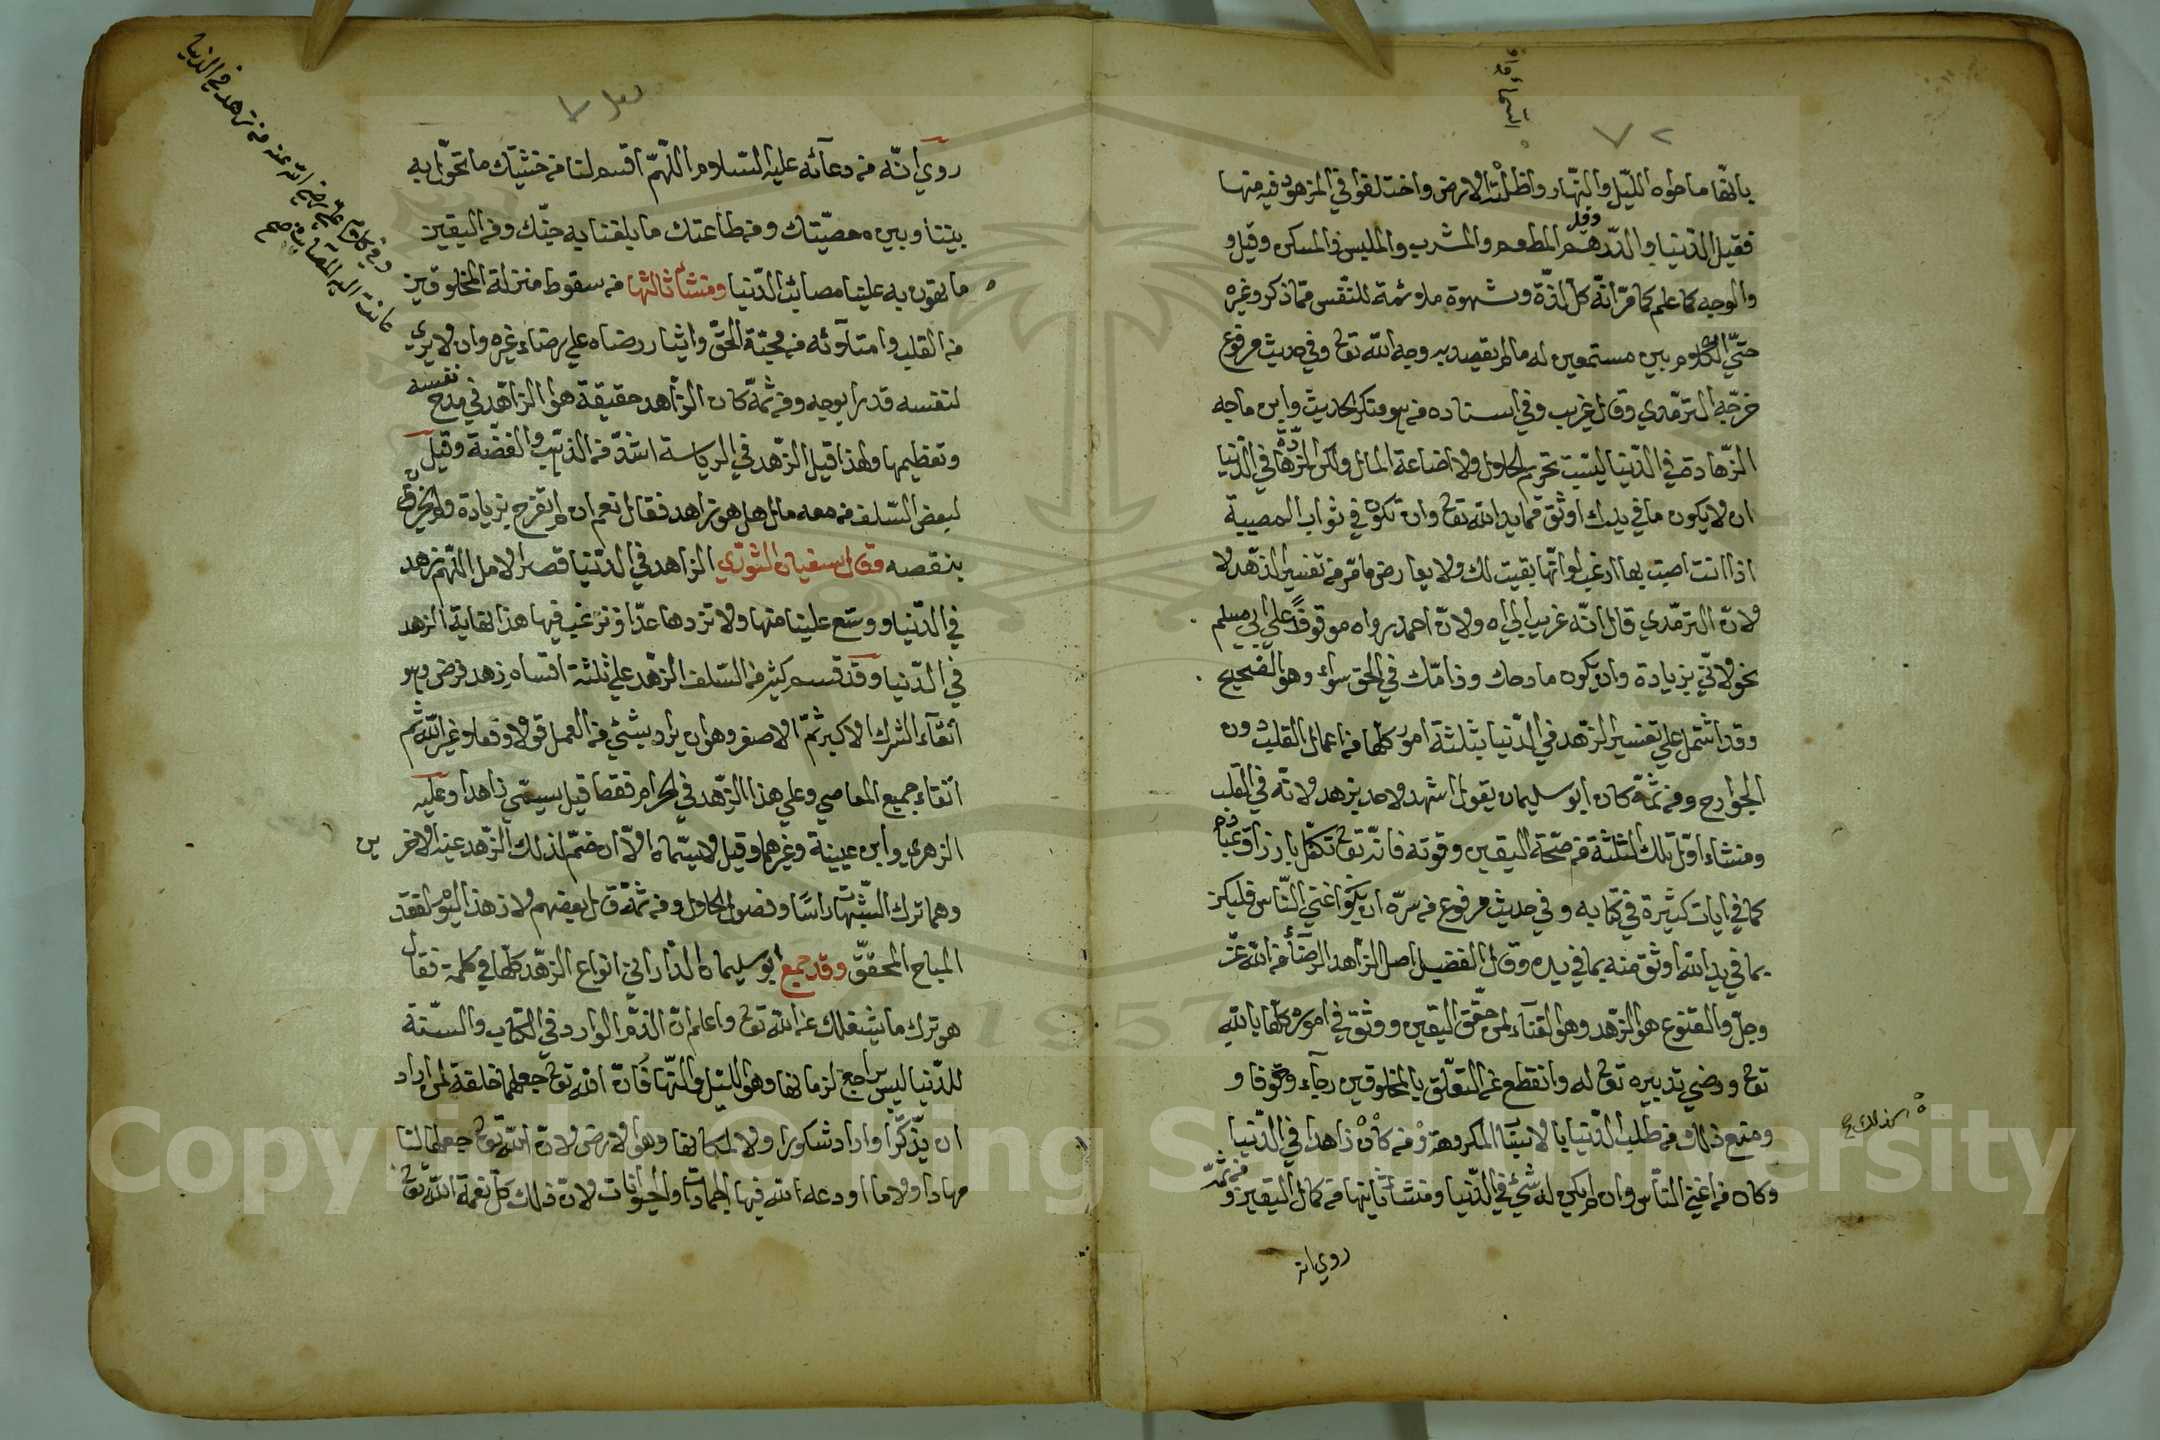 السماء
٧٢
بانها ما حواه الليل والنهار واظلته الارض واختلفوا في المزهود فيه منها
فقيل الدنيا والدرهم وقيل المطعم والمشرب والملبس والمسكن وقيل و
والوجه كما علم مما مر انه كل لذة وشهوة ملائمة للنفس مما ذكر وغيره
حتى الكلام بين مستمعين له ما لم يقصد به وجه الله تع وفي حديث مرفوع
خرجه الترمذي وقال غريب وفي اسناده من هو منكر الحديث وابن ماجه
الزهادة في الدنيا ليست بتحريم الحلال ولا اضاعة المال ولكن الزهادة في الدنيا
ان لا يكون ما في يديك اوثق مما بيد الله تع وان تكون في ثواب المصيبة
اذا انت اصبت بها ارغب لو انها بقيت لك ولا يعارض ما مر من تفسير الزهد لا
لان الترمذي قال انه غريب ولان احمد رواه موقوفا على ابي مسلم
الخولاني بزيادة وان يكون مادحك وذامك في الحق سواء وهو الصحيح
وقد اشتمل على تفسير الزهد في الدنيا بثلثة امور كلها من اعمال القلب دون
الجوارح ومن ثمة كان ابو سليمان يقول اشهد لاحد بزهد لانه في القلب
ومنشاء اول تلك الثلثة من صحة اليقين وقوته فانه تع تكفل بارزاق عباده
كما في ايات كثيرة في كتابه وفي حديث مرفوع من سره ان يكون اغنى الناس فليكن
بما في يد الله اوثق منه بما في يده وقال الفضيل اصل الزهد الرضاء من الله عز
وجل والقنوع هو الزهد وهو الغناء لمن حقق اليقين ووثق في اموره كلها بالله
تع ورضي تدبيره تع له وانقطع عن التعلق بالمخلوقين رجاء وخوفا و
ومنع ذلك من طلب الدنيا بالاسباب المكروهة ومن كان كذلك كان زاهدا في الدنيا
وكان من اغنى الناس وان لم يكن له شئ في الدنيا ومنشا ثانيتها من كمال اليقين ومن ثمة
روي انه
روي انه من دعائه عليه السلام اللهم اقسم لنا من خشيتك ما تحول به
بيننا وبين معصيتك ومن طاعتك ما يبلغنا به جنتك ومن اليقين
ما تهون به علينا مصائب الدنيا ومنشا ثالثها من سقوط منزلة المخلوقين
من القلب وامتلائه من محبة الحق وايثار رضاه على رضاء غيره وان لا يرى
لنفسه قدرا بوجه ومن ثمة كان الزاهد حقيقة هو الزاهد في مدح نفسه
وتعظيمها ولهذا قيل الزهد في الرياسة اشد من الذهب والفضة وقيل
لبعض السلف من معه مال هل هو زاهد فقال نعم ان لم يفرح بزيادة ولم يحزن
بنقصه وقال سفيان الثوري الزاهد في الدنيا قصر الامل اللهم زهد
في الدنيا ووسع علينا منها ولا تزدها عنا وترغب فيها هذا لغاية الزهد
في الدنيا وقد قسم كثير من السلف الزهد على ثلثة اقسام زهد فرض وهو
اتقاء الشرك الاكبر ثم الاصغر وهو ان يراد بشئ من العمل قولا وفعلا غير الله ثم
اتقاء جميع المعاصي وعلى هذا الزهد في الحرام فقط قيل يسمى زاهدا وعليه
الزهري وابن عيينة وغيرهما وقيل لا يسماه الا ان ضم لذلك الزهد عند الاخرين
وهما ترك الشبهات راسا وفضول الحلال ومن ثمة قال بعضهم لا زهد اليوم لفقد
المباح المحقق وقد جمع ابو سليمان الداراني انواع الزهد كلها في كلمة فقال
هو ترك ما يشغلك عن الله تع واعلم ان الذم الوارد في الكتاب والسنة
للدنيا ليس براجع لزمانها وهو الليل والنهار فان الله تع جعلهما خلفة لمن اراد
ان يذكر او اراد شكورا ولا لمكانها وهو الارض لان الله تع جعلها لنا
مهادا ولا ما اودعه الله فيها الجمادات والحيوانات لان ذلك كل نعمة الله تع
وفي كلام علي رضي الله عنه من زهد في الدنيا
هانت اليه المصائب صح